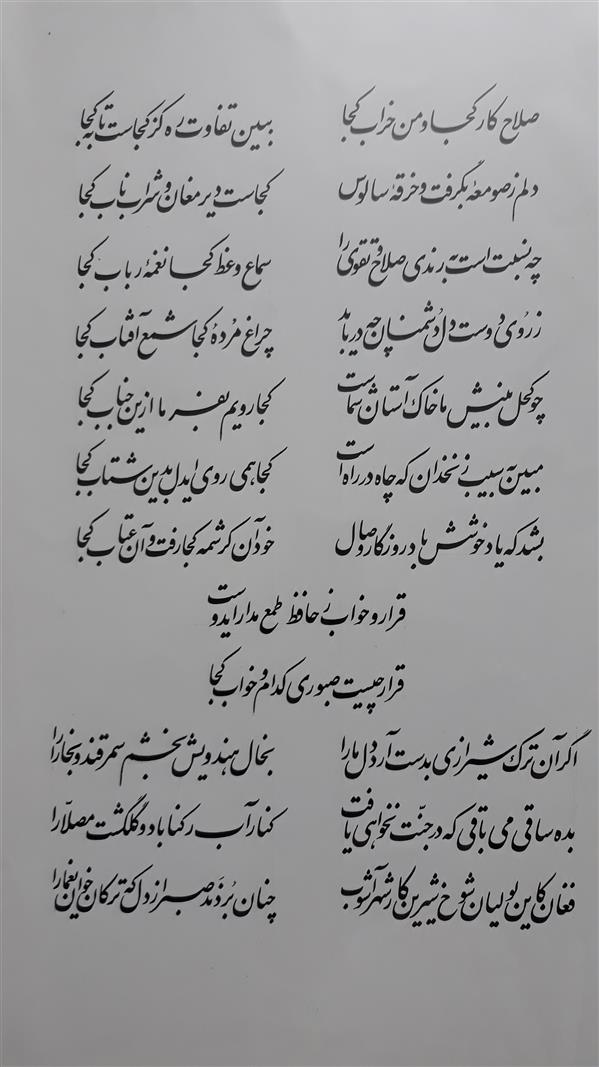 صلاح کار کجا و من خراب کجا ببین تفاوت ره کز کجاست تا به کجا
دلم ز صومعه بگرفت و خرقهٔ سالوس کجاست دیر مغان و شراب ناب کجا
چه نسبت است به رندی صلاح و تقوی را سماع وعظ کجا نغمهٔ رباب کجا
ز روی دوست دل دشمنان چه دریابد چراغ مُردهٔ کجا شمع آفتاب کجا
چو کحل بینش ما خاک آستان شماست کجا رویم بفرما ازین جناب کجا
مبین به سیب زنخدان که چاه در راه است کجا همی روی ایدل بدین شتاب کجا
بشد که یاد خوشش باد روزگار وصال خود آن کرشمه کجا رفت و آن عتاب کجا
قرار و خواب ز حافظ طمع مدار ایدوست
قرار چیست صبوری کدام و خواب کجا
اگر آن ترک شیرازی بدست آرد دل ما را بخال هندویش بخشم سمرقند و بخارا را
بده ساقی می باقی که در جنّت نخواهی یافت کنار آب رکناباد و گلگشت مصلّا را
فغان کاین لولیان شوخ شیرین کار شهر آشوب چنان بُردند صبر از دل که ترکان خوان یغما را